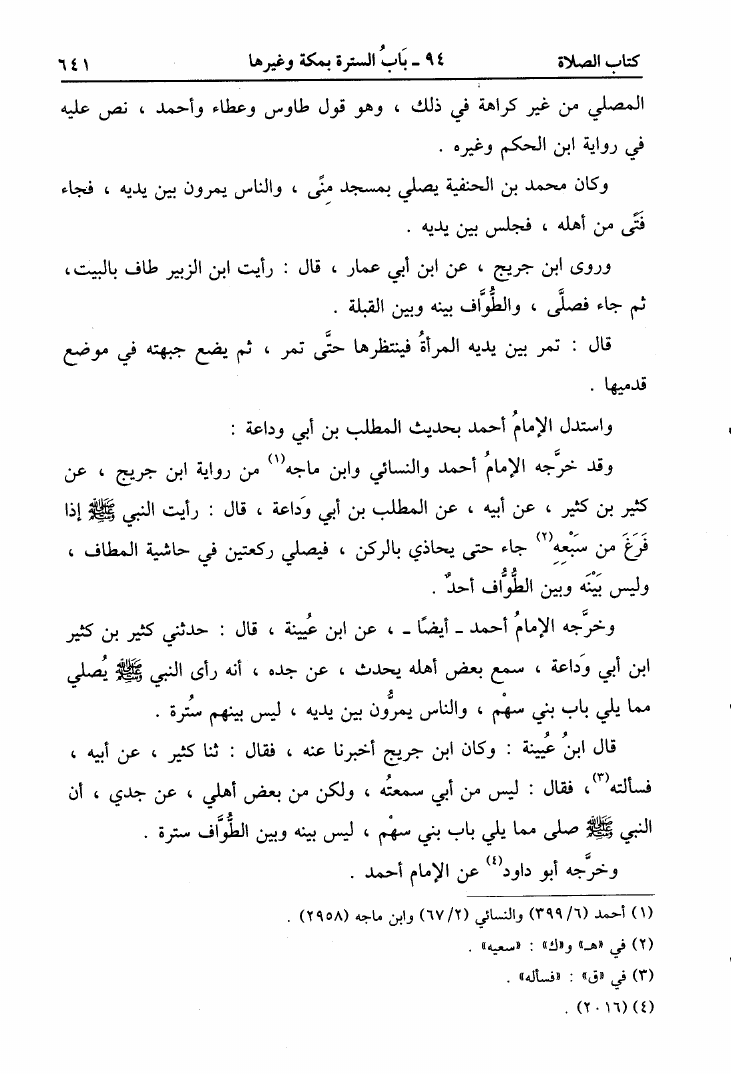 كتاب الصلاة ٩٤ ـ بَابُ السترة بمكة وغيرها ٦٤١
المصلي من غير كراهة في ذلك ، وهو قول طاوس وعطاء وأحمد ، نص عليه
في رواية ابن الحكم وغيره .
وكان محمد بن الحنفية يصلي بمسجد مِنًى ، والناس يمرون بين يديه ، فجاء
فَتًى من أهله ، فجلس بين يديه .
وروى ابن جريج ، عن ابن أبي عمار ، قال : رأيت ابن الزبير طاف بالبيت،
ثم جاء فصلَّى ، والطُّوَّاف بينه وبين القبلة .
قال : تمر بين يديه المرأةُ فينتظرها حتَّى تمر ، ثم يضع جبهته في موضع
قدميها .
واستدل الإمامُ أحمد بحديث المطلب بن أبي وداعة :
وقد خرَّجه الإمامُ أحمد والنسائي وابن ماجه(١) من رواية ابن جريج ، عن
كثير بن كثير ، عن أبيه ، عن المطلب بن أبي وَداعة ، قال : رأيت النبي ﷺ إذا
فَرَغَ من سَبْعِهِ(٢) جاء حتى يحاذي بالركن ، فيصلي ركعتين في حاشية المطاف ،
وليس بَيْنَه وبين الطُّوَّاف أحدٌ .
وخرَّجه الإمامُ أحمد ـ أيضًا ـ ، عن ابن عُيينة ، قال : حدثني كثير بن كثير
ابن أبي وَداعة ، سمع بعض أهله يحدث ، عن جده ، أنه رأى النبي ﷺ يُصلي
مما يلي باب بني سهْم ، والناس يمرُّون بين يديه ، ليس بينهم سُترة .
قال ابنُ عُيينة : وكان ابن جريج أخبرنا عنه ، فقال : ثنا كثير ، عن أبيه ،
فسألته(٣)، فقال : ليس من أبي سمعتُه ، ولكن من بعض أهلي ، عن جدي ، أن
النبي ﷺ صلى مما يلي باب بني سهْم ، ليس بينه وبين الطُّوَّاف سترة .
وخرَّجه أبو داود(٤) عن الإمام أحمد .
(١) أحمد (٣٩٩/٦) والنسائي (٦٧/٢) وابن ماجه (٢٩٥٨) .
(٢) في «هـ» و«ك» : «سعيه» .
(٣) في «ق» : «فسأله» .
(٤) (٢٠١٦) .